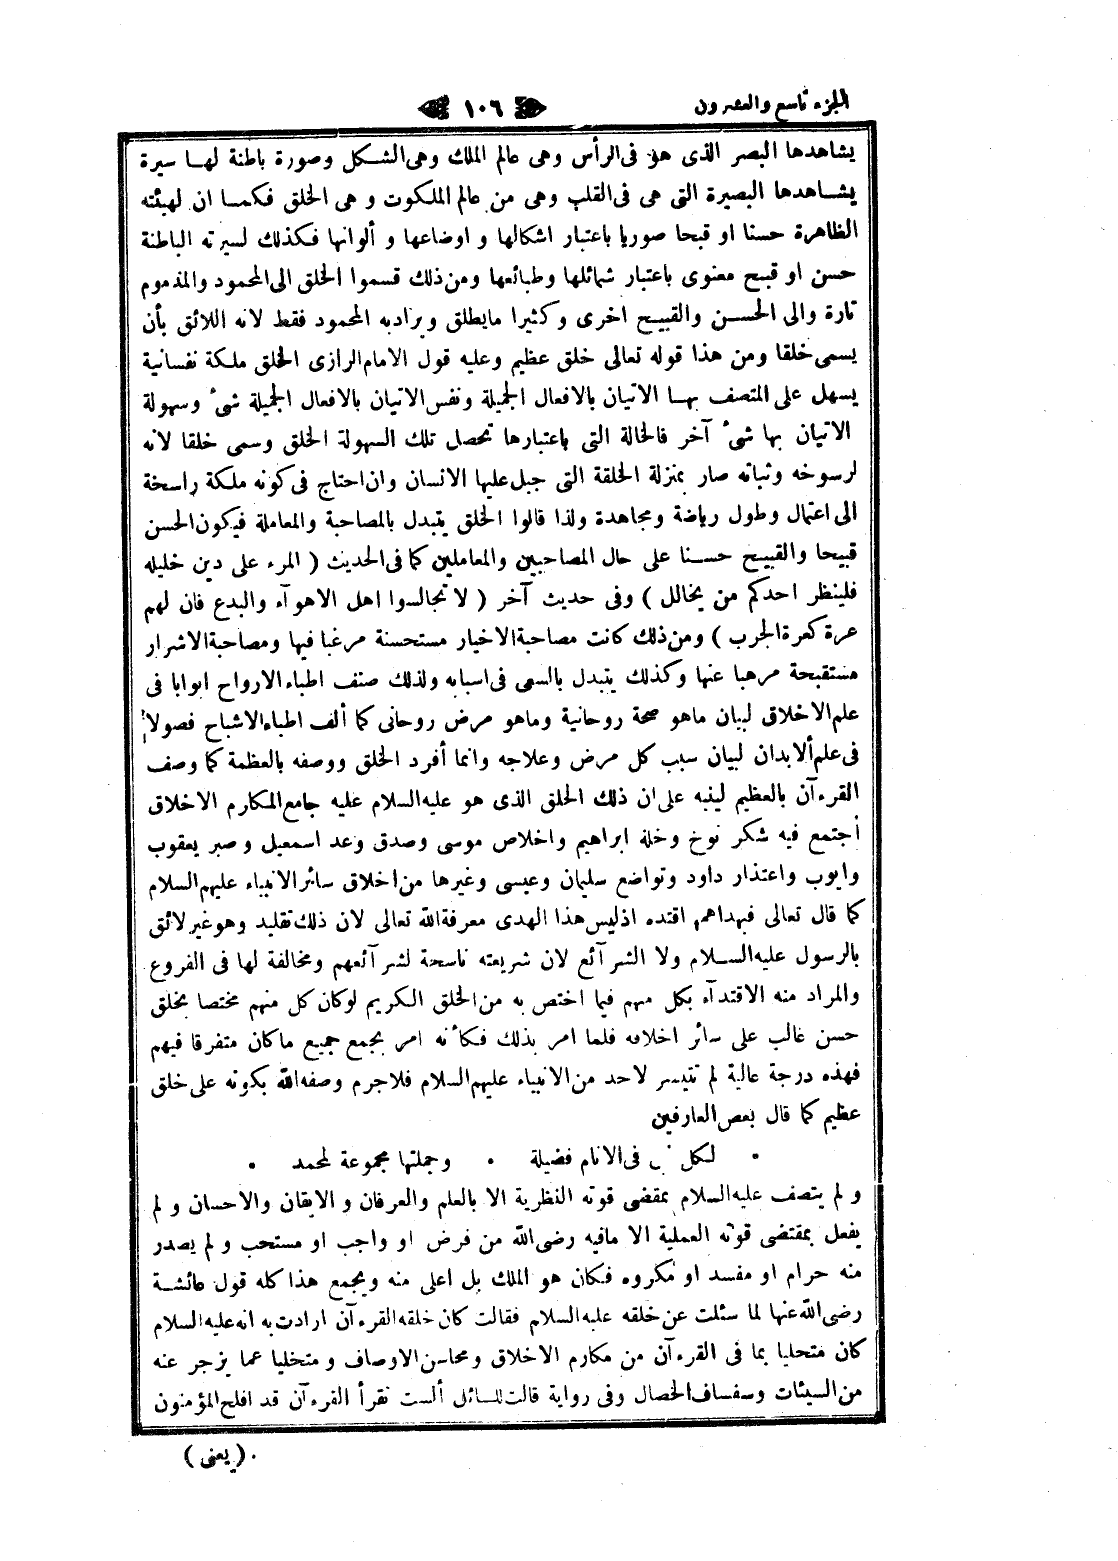 الجزء تاسع والعشرون
١٠٦
يشاهدها البصر الذى هو فى الرأس وهى عالم الملك وهى الشكل وصورة باطنة لها سيرة
يشاهدها البصيرة التى هى فى القلب وهى من عالم الملكوت و هى الخلق فكما ان لهيئته
الظاهرة حسنا او قبحا صوريا باعتبار اشكالها و اوضاعها و ألوانها فكذلك لسيرته الباطنة
حسن او قبيح معنوى باعتبار شمائلها وطبائعها ومن ذلك قسموا الخلق الى المحمود والمذموم
تارة والى الحسن والقبيح اخرى وكثيرا مايطلق ويرادبه المحمود فقط لانه اللائق بأن
يسمى خلقا ومن هذا قوله تعالى خلق عظيم وعليه قول الامام الرازى الخلق ملكة نفسانية
يسهل على المتصف بها الاتيان بالافعال الجميلة ونفس الاتيان بالافعال الجميلة شىء وسهولة
الاتيان بها شىء آخر فالحالة التى باعتبارها تحصل تلك السهولة الخلق وسمى خلقا لانه
لرسوخه وثباته صار بمنزلة الخلقة التى جبل عليها الانسان وان احتاج فى كونه ملكة راسخة
الى اعتمال وطول رياضة ومجاهدة ولذا قالوا الخلق يتبدل بالمصاحبة والمعاملة فيكون الحسن
قبيحا والقبيح حسنا على حال المصاحبين والمعاملين كما فى الحديث ( المرء على دين خليله
فلينظر احدكم من يخالل ) وفى حديث آخر ( لا تجالسوا اهل الاهوآء والبدع فان لهم
عرة كعرة الجرب ) ومن ذلك كانت مصاحبة الاخيار مستحسنة مرغبا فيها ومصاحبة الاشرار
مستقبحة مرهبا عنها وكذلك يتبدل بالسعى فى اسبابه ولذلك صنف اطباء الارواح ابوابا فى
علم الاخلاق لبيان ماهو صحة روحانية وماهو مرض روحانى كما ألف اطباء الاشباح فصولا
فى علم ألابدان لبيان سبب كل مرض وعلاجه وانما أفرد الخلق ووصفه بالعظمة كما وصف
القرءآن بالعظيم لينبه على ان ذلك الخلق الذى هو عليه السلام عليه جامع المكارم الاخلاق
اجتمع فيه شكر نوح وخلة ابراهيم واخلاص موسى وصدق وعد اسمعيل و صبر يعقوب
وايوب واعتذار داود وتواضع سليمان وعيسى وغيرها من اخلاق سائر الانبياء عليهم السلام
كما قال تعالى فبهداهم اقتده اذليس هذا الهدى معرفة الله تعالى لان ذلك تقليد وهو غير لائق
بالرسول عليه السلام ولا الشرآئع لان شريعته ناسخة لشرآئعهم ومخالفة لها فى الفروع
والمراد منه الاقتدآء بكل منهم فيما اختص به من الخلق الكريم لوكان كل منهم مختصا بخلق
حسن غالب على سائر اخلاقه فلما امر بذلك فكأنه امر بجمع جميع ماكان متفرقا فيهم
فهذه درجة عالية لم تتيسر لاحد من الانبياء عليهم السلام فلاجرم وصفه الله بكونه على خلق
عظيم كما قال بعض العارفين
• لكل فى الانام فضيلة • وجملتها مجموعة لمحمد •
و لم يتصف عليه السلام بمقضى قوته النظرية الا بالعلم والعرفان و الايقان والاحسان و لم
يفعل بمقتضى قوته العملية الا مافيه رضى الله من فرض او واجب او مستحب و لم يصدر
منه حرام او مفسد او مكروه فكان هو الملك بل اعلى منه ويجمع هذا كله قول عائشة
رضى الله عنها لما سئلت عن خلقه عليه السلام فقالت كان خلقه القرءآن ارادت به انه عليه السلام
كان متحليا بما فى القرءآن من مكارم الاخلاق ومحاسن الاوصاف و متخليا عما يزجر عنه
من السيئات وسفساف الخصال وفى رواية قالت للسائل ألست تقرأ القرءآن قد افلح المؤمنون
( يعنى )